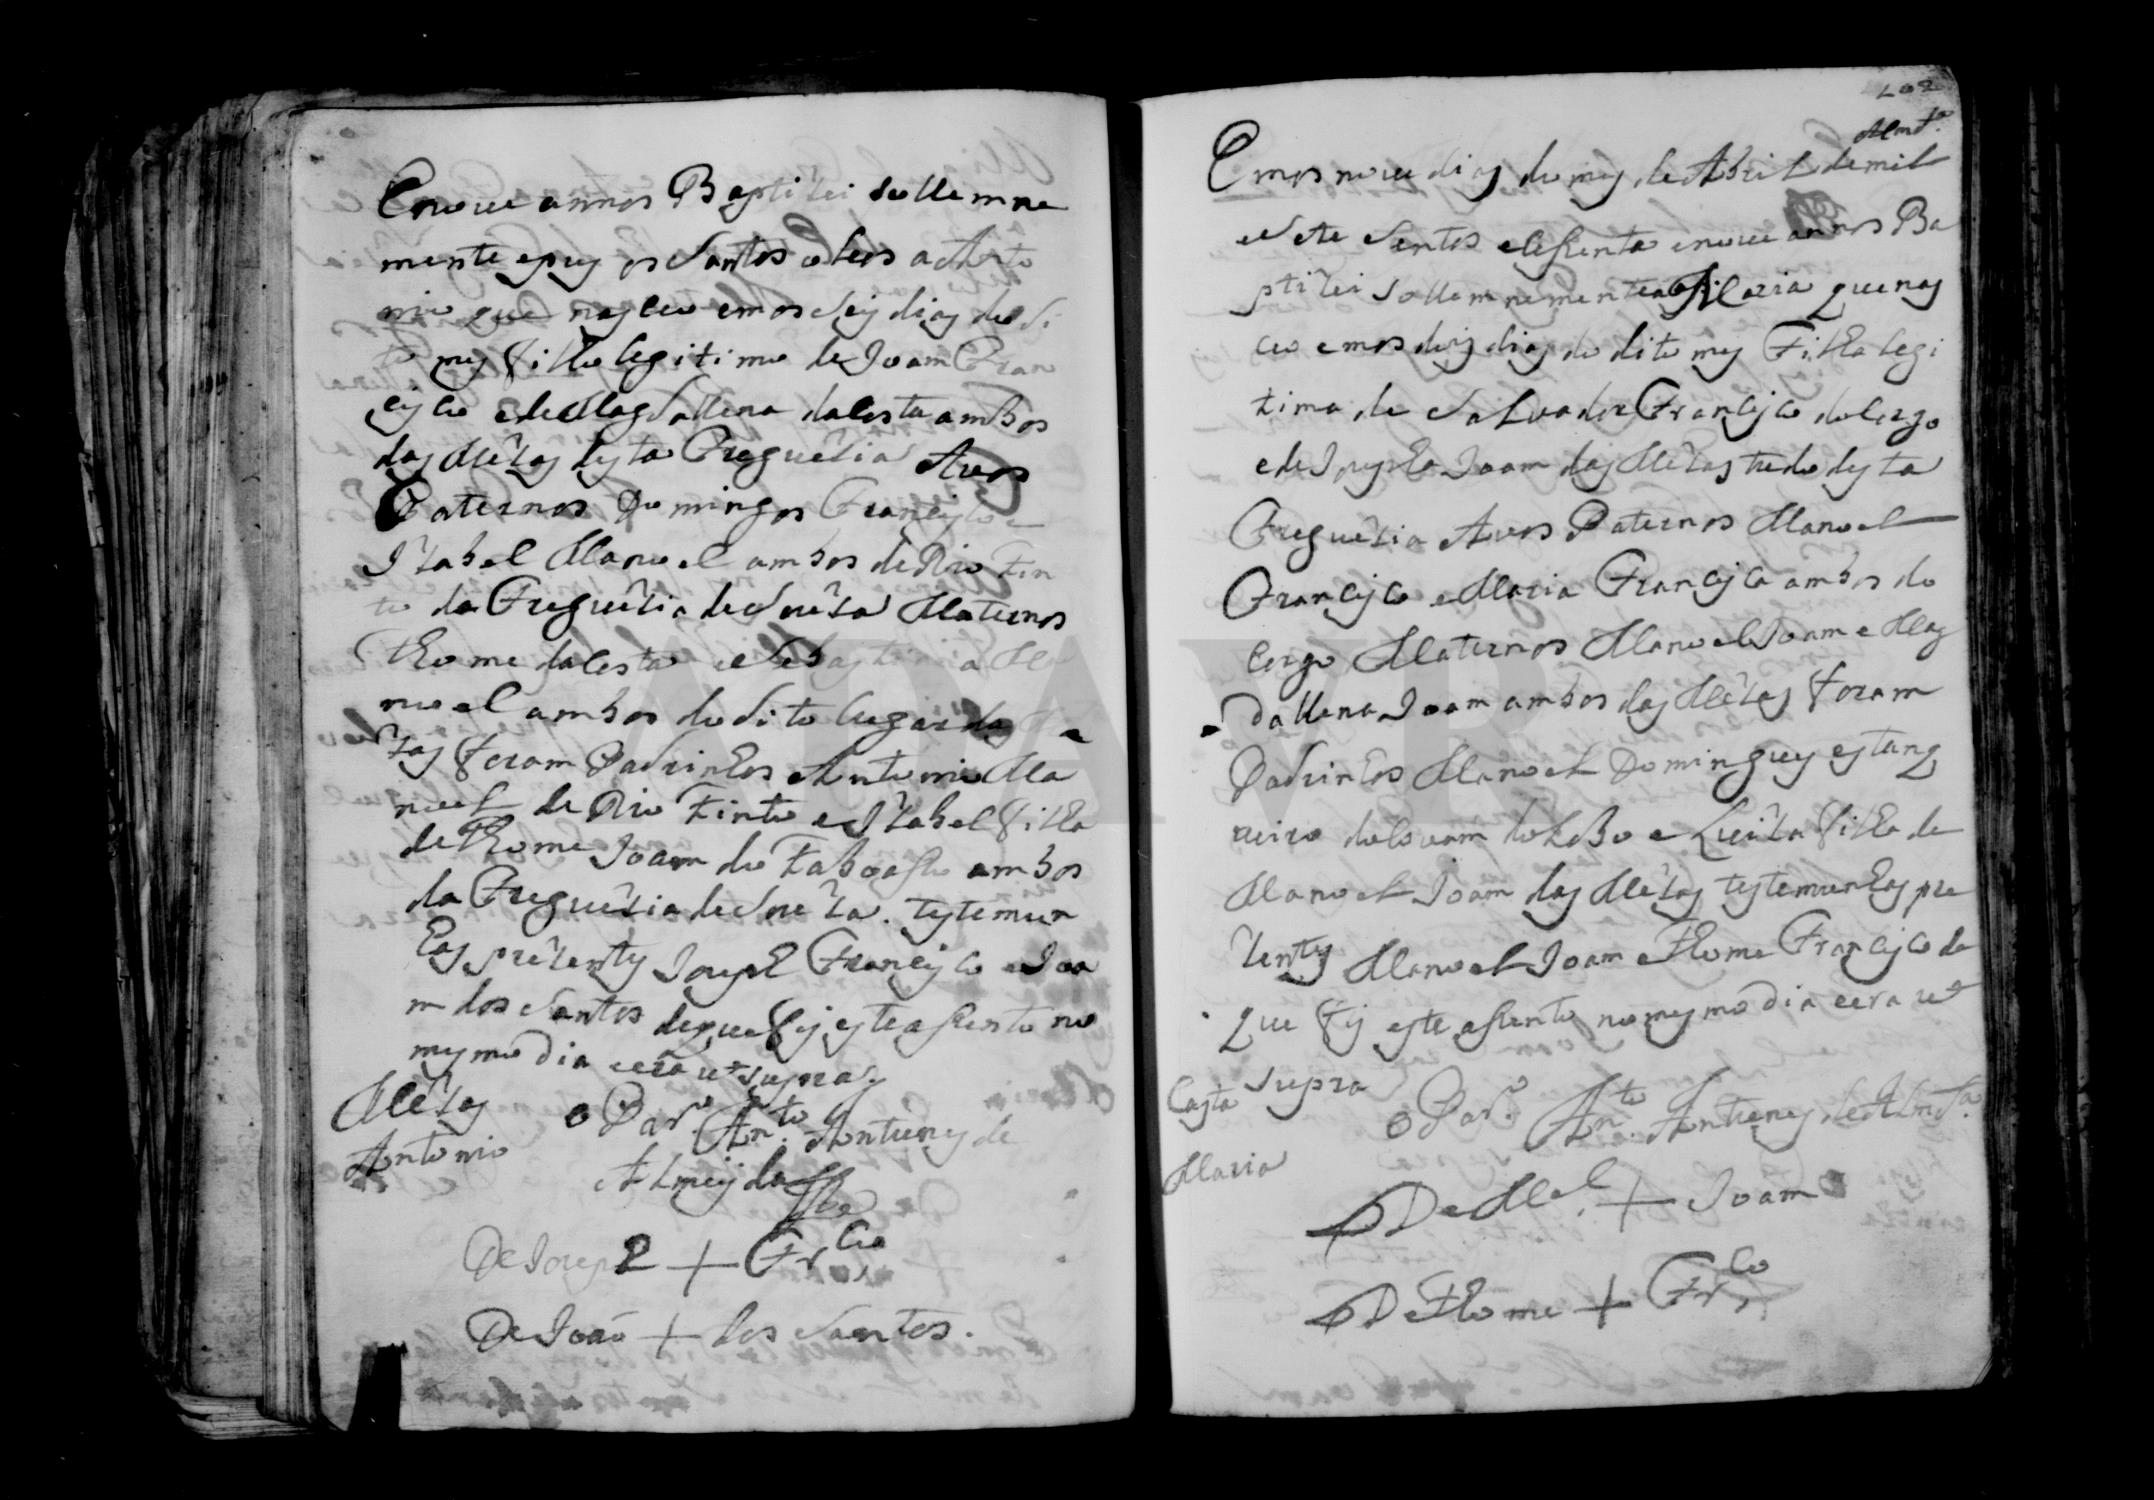 E nove annos Baptizei sollemne
mente e pus os Santos oleos a Anto
nio que nasceo em os seis dias do di
to mes filho legitimo de Joam Fran
cisco e de Magdallena da Costa ambos
das Mezas desta Freguezia Avos
Paternos Domingos Francisco e
Izabel Manoel ambos de Rio Tin
to da Freguezia de Soeza Maternos
Thome da Costa e Sebastiana Ma
noel ambos do dito lugar das Me
zas foram Padrinhos Antonio Ma
noel de Rio Tinto e Izabel filha
de Thome Joam do Taboasso ambos
da Freguezia de Soeza. testemun
has prezentes Joseph Francisco e Joa
m dos Santos de que fis este assento no
mesmo dia e era ut supra
Mezas
Antonio
o Par.º An.to Antunes de
Almeyda
De Joseph + Fr.co
De Joaõ + dos Santos.
Almd.ª
Em os nove dias do mes de Abril de mil
e sete sentos e sesenta e nove annos Ba
ptizei sollemnemente a Maria que nas
ceo em os dois dias do dito mes Filha legi
tima de Salvador Francisco do Corgo
e de Josepha Joam das Mezas tudo desta
Freguezia Avos Paternos Manoel
Francisco e Maria Francisca ambos do
Corgo Maternos Manoel Joam e Mag
dallena Joam ambos das Mezas foram
Padrinhos Manoel Domingues estanq
ueiro do Covam do Lobo e Luiza filha de
Manoel Joam das Mezas testemunhas pre
zentes Manoel Joam e Thome Francisco de
que fis este assento no mesmo dia e era ut
supra
Maria
o Par.º An.to Antunes de Almd.ª
De M.el + Joam
De Thome + Fr.co
ADAVR